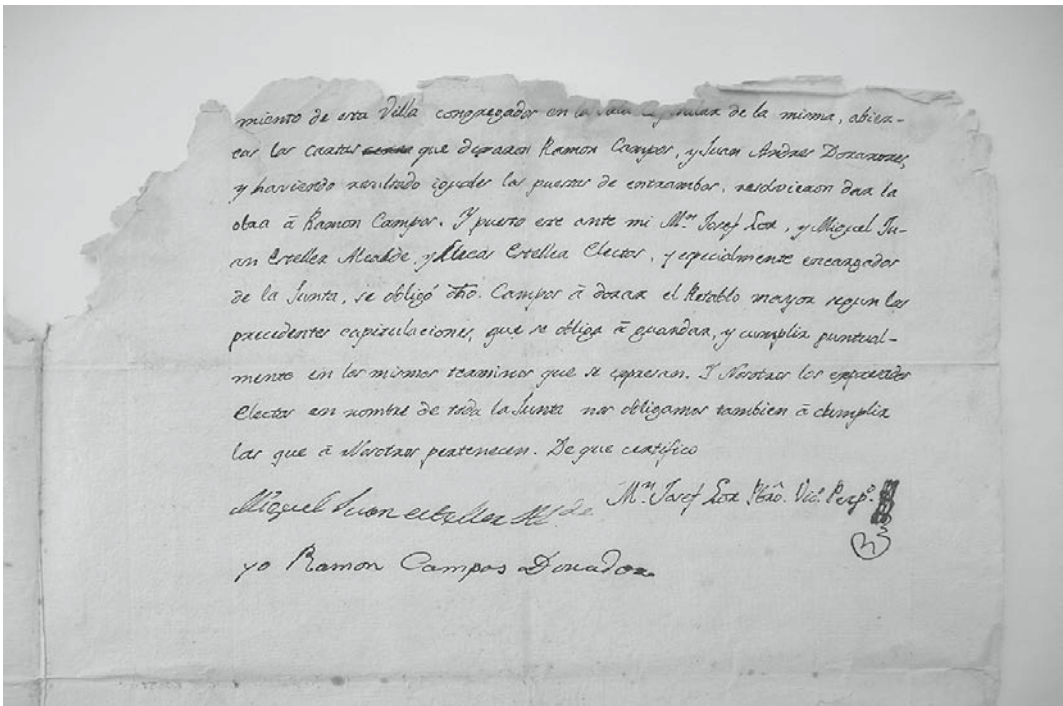 miento de esta Villa congregados en la Sala Capitular de la misma, abier-
tas las cartas que dejaron Ramon Campos, y Juan Andres Doradores,
y haviendo resultado iguales las puestas de entrambos, resolvieron dar la
obra à Ramon Campos. Y puesto este ante mi Mn. Josef Ros, y Miguel Ju-
an Esteller Alcalde, y Esteller Elector, y especialmente encargados
de la Junta, se obligó dho. Campos à dorar el Retablo mayor segun las
precedentes capitulaciones, que se obliga à guardar, y cumplir puntual-
mente en los mismos terminos que se espresan. I Nosotros los espresados
Electos en nombre de toda la Junta nos obligamos tambien à cumplir
las que à Nosotros pertenecen. De que certifico
Miguel Juan esteller Alde
Mn. Josef Ros Pbro. Vic. Perp.
yo Ramon Campos Dorador